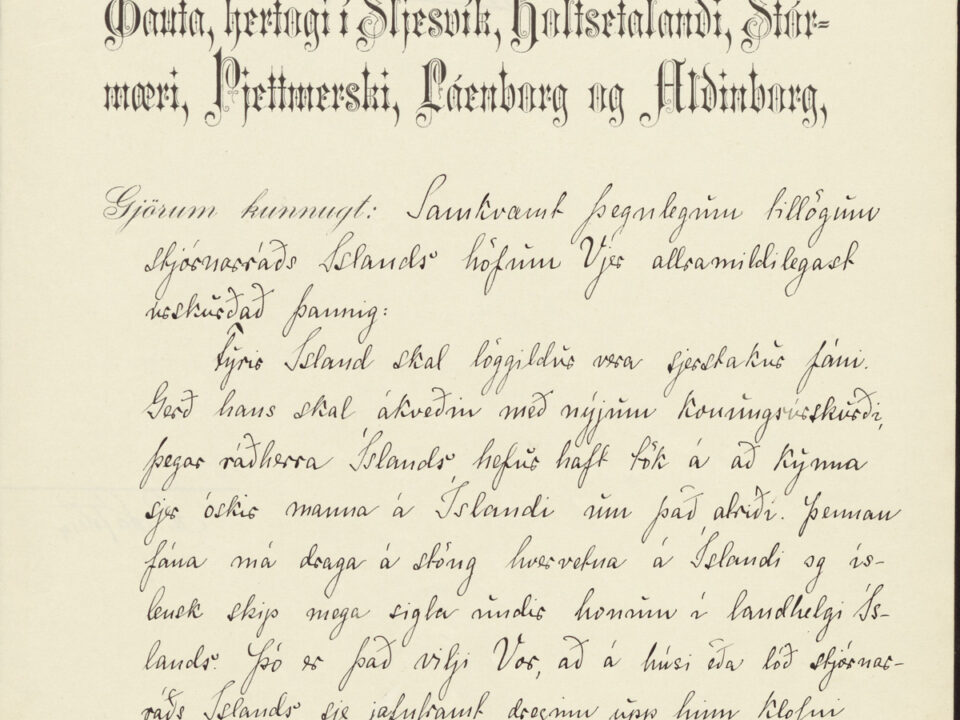 Gauta, hertogi í Sljesvík, Holtsetalandi, Stór-
mæri, Þjettmerski, Láenborg og Aldinborg,
Gjörum kunnugt: Samkvamt þegnlegum tillögum
stjórnarráðs Íslands höfum Vjer allramildilegast
úrskurðað þannig:
Fyrir Ísland skal löggildur vera sjerstakur fáni.
Gerð hans skal ákveðin með nýjum konungsúrskurði,
þegar ráðherra Íslands hefur haft tök á að kynna
sjer óskir manna á Íslandi um það atriði. Þennan
fána má draga á stöng hvervetna á Íslandi og ís-
lensk skip mega sigla undir honum í landhelgi Ís-
lands. Þó er það vilji Vor, að á húsi eða lóð stjórnar-
ráðs Íslands sje jafnframt dreginn upp hinn klofni